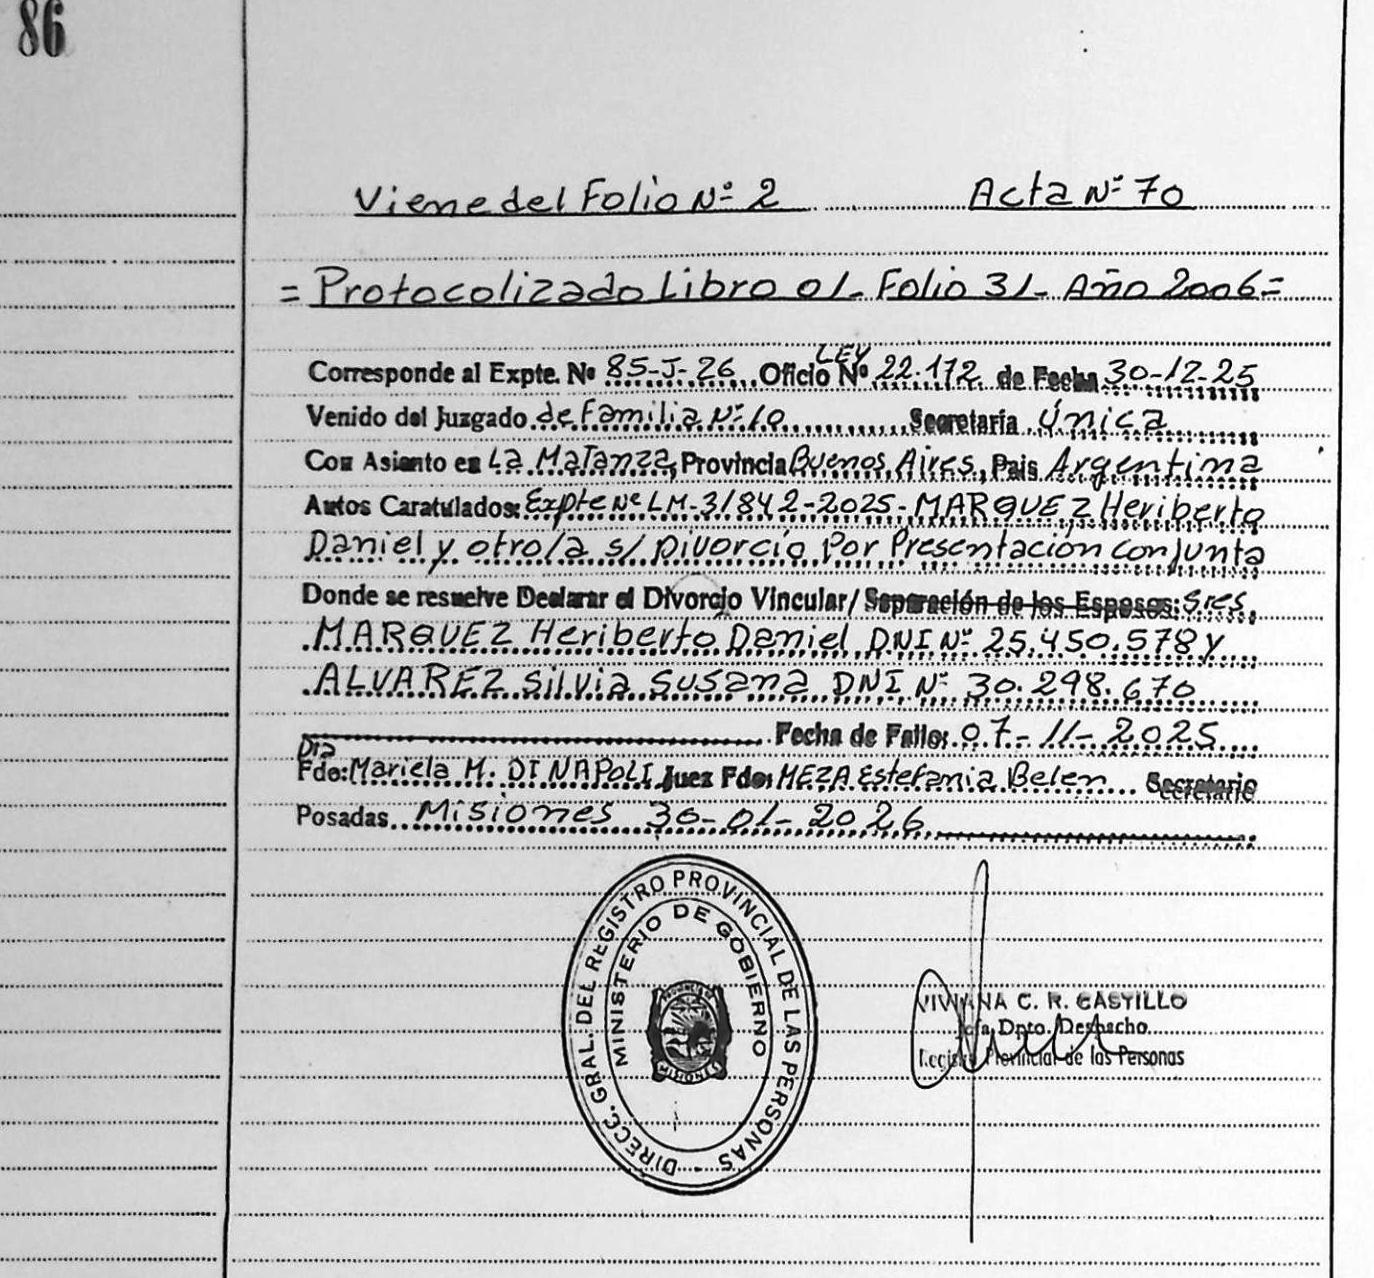 86
Viene del Folio Nº 2 Acta Nº 70
= Protocolizado Libro 01- Folio 31- Año 2006=
LEY
Corresponde al Expte. Nº 85-J-26 Oficio Nº 22.172 de Fecha 30-12-25
Venido del Juzgado de Familia Nº 10 Secretaría Única
Con Asiento en La Matanza, Provincia Buenos Aires, Pais Argentina
Autos Caratulados: Expte Nº LM-31842-2025-MARQUEZ Heriberto
Daniel y otro/a s/ Divorcio Por Presentación conjunta
Donde se resuelve Declarar el Divorcio Vincular/ Separación de los Esposos: Sres.
MARQUEZ Heriberto Daniel DNI Nº 25.450.578 y
ALVAREZ Silvia Susana DNI Nº 30.298.670
Fecha de Fallo: 07-11-2025
Dra
Fdo: Mariela M. DI NAPOLI Juez Fdo: MEZA Estefania Belen Secretario
Posadas Misiones 30-01-2026
DIRECC. GRAL. DEL REGISTRO PROVINCIAL DE LAS PERSONAS
MINISTERIO DE GOBIERNO
MISIONES
VIVIANA C. R. CASTILLO
Jefa Dpto. Despacho
Registro Provincial de las Personas